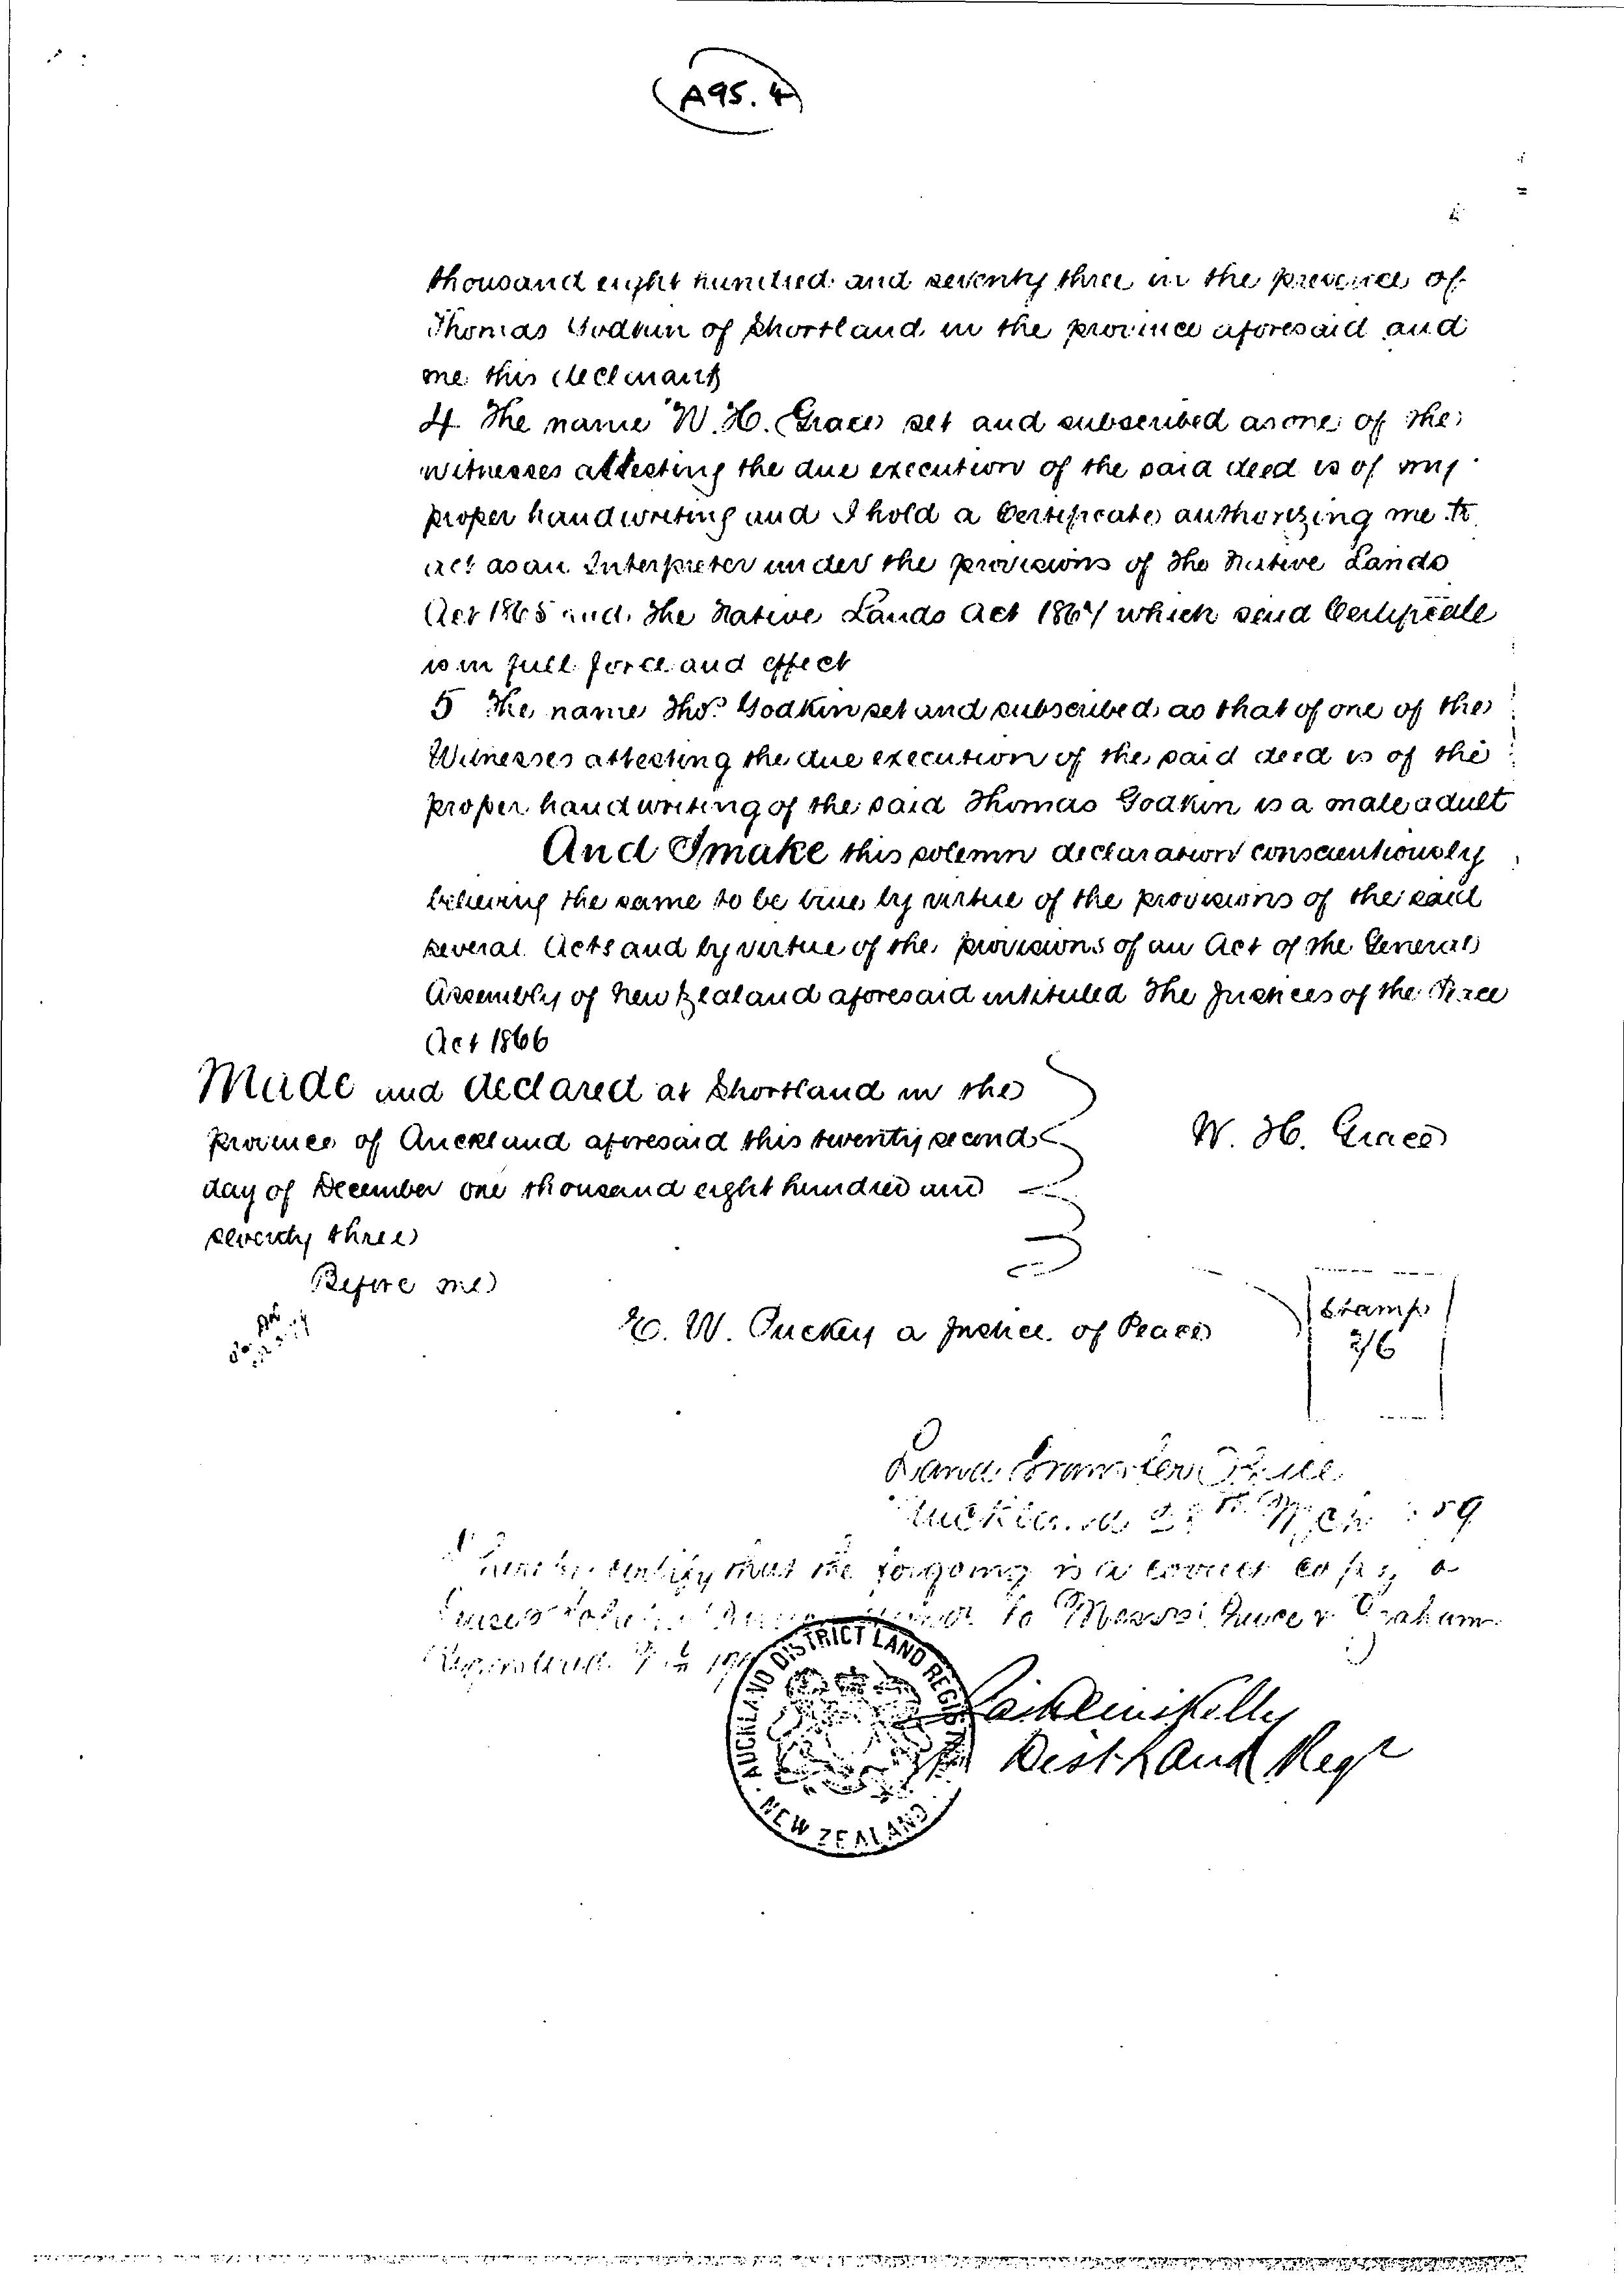 A95.4
thousand eight hundred and seventy three in the presence of
Thomas Godkin of Shortland in the province aforesaid and
me this declarant
4 The name W. H. Grace set and subscribed as one of the
witnesses attesting the due execution of the said deed is of my
proper handwriting and I hold a Certificate authorizing me to
act as an Interpreter under the provisions of The Native Lands
Act 1865 and The Native Lands Act 1867 which said Certificate
is in full force and effect
5 The name Thos. Godkin set and subscribed as that of one of the
Witnesses attesting the due execution of the said deed is of the
proper handwriting of the said Thomas Godkin is a male adult
And I make this solemn declaration conscientiously
believing the same to be true by virtue of the provisions of the said
several Acts and by virtue of the provisions of an Act of the General
Assembly of New Zealand aforesaid intituled The Justices of the Peace
Act 1866
Made and declared at Shortland in the
Province of Auckland aforesaid this twenty second
day of December one thousand eight hundred and
seventy three
W. H. Grace
Before me
E. W. Puckey a Justice of Peace
Stamp
2/6
Land Transfer Office
Auckland
certify that the forgoing is a correct copy
to Messrs Graham
AUCKLAND DISTRICT LAND REGISTRAR
NEW ZEALAND
Dist Land Regr